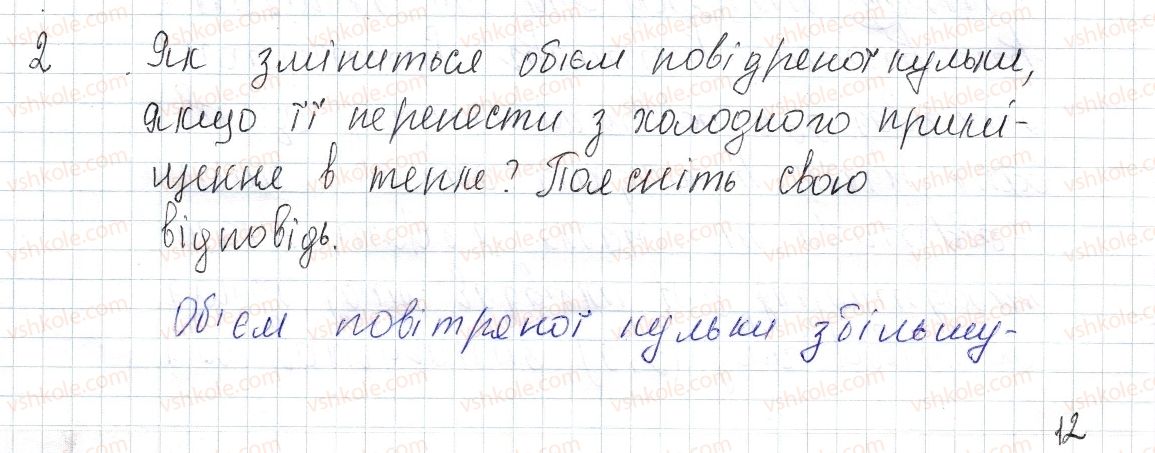 2 Як зміниться обієм повідреної кульки,
якщо її перенести з холодного примі-
щення в тепле? Поясніть свою
відповідь.
Обієм повітряної кульки збільшу-
12